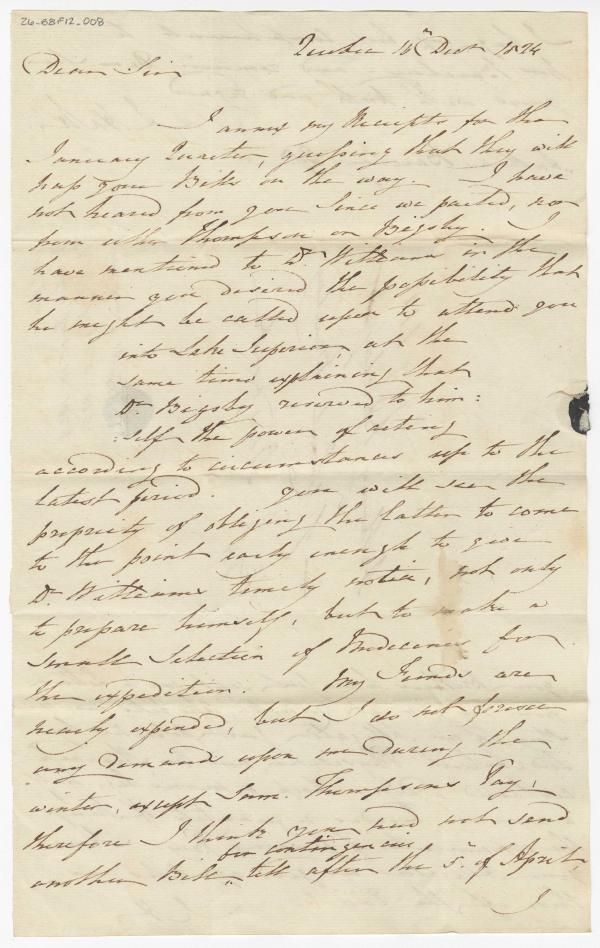 26-68F12_008
Quebec 16th Decr 1824
Dear Sir
I annex my Receipts for the
January Quarter, guessing that they will
pass your Bills on the way. I have
not heard from you since we parted, nor
from either Thompson or Bigsby. I
have mentioned to Dr Williams in the
manner you desired the possibility that
he might be called upon to attend you
into Lake Superior, at the
same time explaining that
Dr Bigsby reserved to him:
:self the power of acting
according to circumstances up to the
latest period. You will see the
propriety of obliging the latter to come
to the point early enough to give
Dr Williams timely notice, not only
to prepare himself, but to make a
small selection of Medecines for
the expedition. My Funds are
nearly expended, but I do not foresee
any Demands upon me during the
winter, except Thompsons Pay,
therefore I think you need not send
for contingencies
another Bill till after the 5th of April,
I